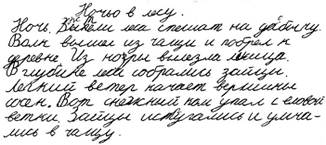 Ночью в лесу.
Ночь. Звери леса спешат на дабычу.
Волк вышел из чащи и побрел к
деревне. Из норы вылезла лисица.
В глубине леса собрались зайци.
Лехкий ветер качает вершины
сосен. Вот снежный ком упал с еловой
ветки. Зайци испугались и умча-
лись в чащу.